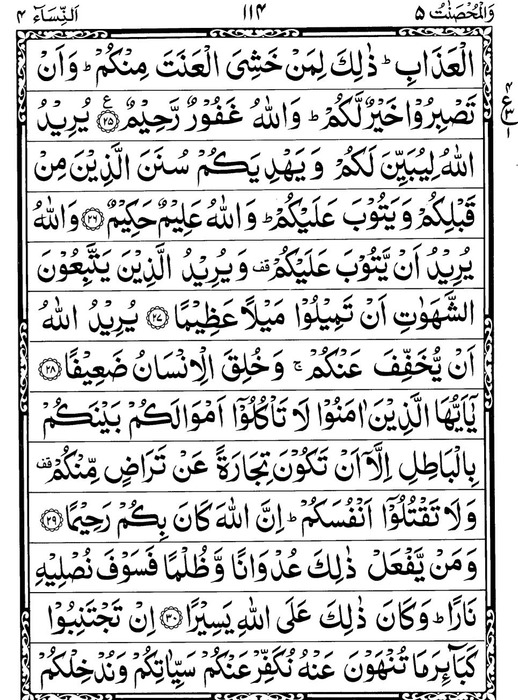 وَالْمُحْصَنٰتُ ۵ ۱۱۴ اَلنِّسَآء ۴
الْعَذَابِ ؕ ذٰلِكَ لِمَنْ خَشِیَ الْعَنَتَ مِنْكُمْ ؕ وَاَنْ
تَصْبِرُوْا خَیْرٌ لَّكُمْ ؕ وَاللّٰهُ غَفُوْرٌ رَّحِیْمٌ ۟ع ﴿۲۵﴾ یُرِیْدُ
اللّٰهُ لِیُبَیِّنَ لَكُمْ وَیَهْدِیَكُمْ سُنَنَ الَّذِیْنَ مِنْ
قَبْلِكُمْ وَیَتُوْبَ عَلَیْكُمْ ؕ وَاللّٰهُ عَلِیْمٌ حَكِیْمٌ ﴿۲۶﴾ وَاللّٰهُ
یُرِیْدُ اَنْ یَّتُوْبَ عَلَیْكُمْ قف وَیُرِیْدُ الَّذِیْنَ یَتَّبِعُوْنَ
الشَّهَوٰتِ اَنْ تَمِیْلُوْا مَیْلًا عَظِیْمًا ﴿۲۷﴾ یُرِیْدُ اللّٰهُ
اَنْ یُّخَفِّفَ عَنْكُمْ ۚ وَخُلِقَ الْاِنْسَانُ ضَعِیْفًا ﴿۲۸﴾
یٰۤاَیُّهَا الَّذِیْنَ اٰمَنُوْا لَا تَاْكُلُوْۤا اَمْوَالَكُمْ بَیْنَكُمْ
بِالْبَاطِلِ اِلَّاۤ اَنْ تَكُوْنَ تِجَارَةً عَنْ تَرَاضٍ مِّنْكُمْ قف
وَلَا تَقْتُلُوْۤا اَنْفُسَكُمْ ؕ اِنَّ اللّٰهَ كَانَ بِكُمْ رَحِیْمًا ﴿۲۹﴾
وَمَنْ یَّفْعَلْ ذٰلِكَ عُدْوَانًا وَّظُلْمًا فَسَوْفَ نُصْلِیْهِ
نَارًا ؕ وَكَانَ ذٰلِكَ عَلَی اللّٰهِ یَسِیْرًا ﴿۳۰﴾ اِنْ تَجْتَنِبُوْا
كَبَآئِرَ مَا تُنْهَوْنَ عَنْهُ نُكَفِّرْ عَنْكُمْ سَیِّاٰتِكُمْ وَنُدْخِلْكُمْ
۴
ع ۳
۱